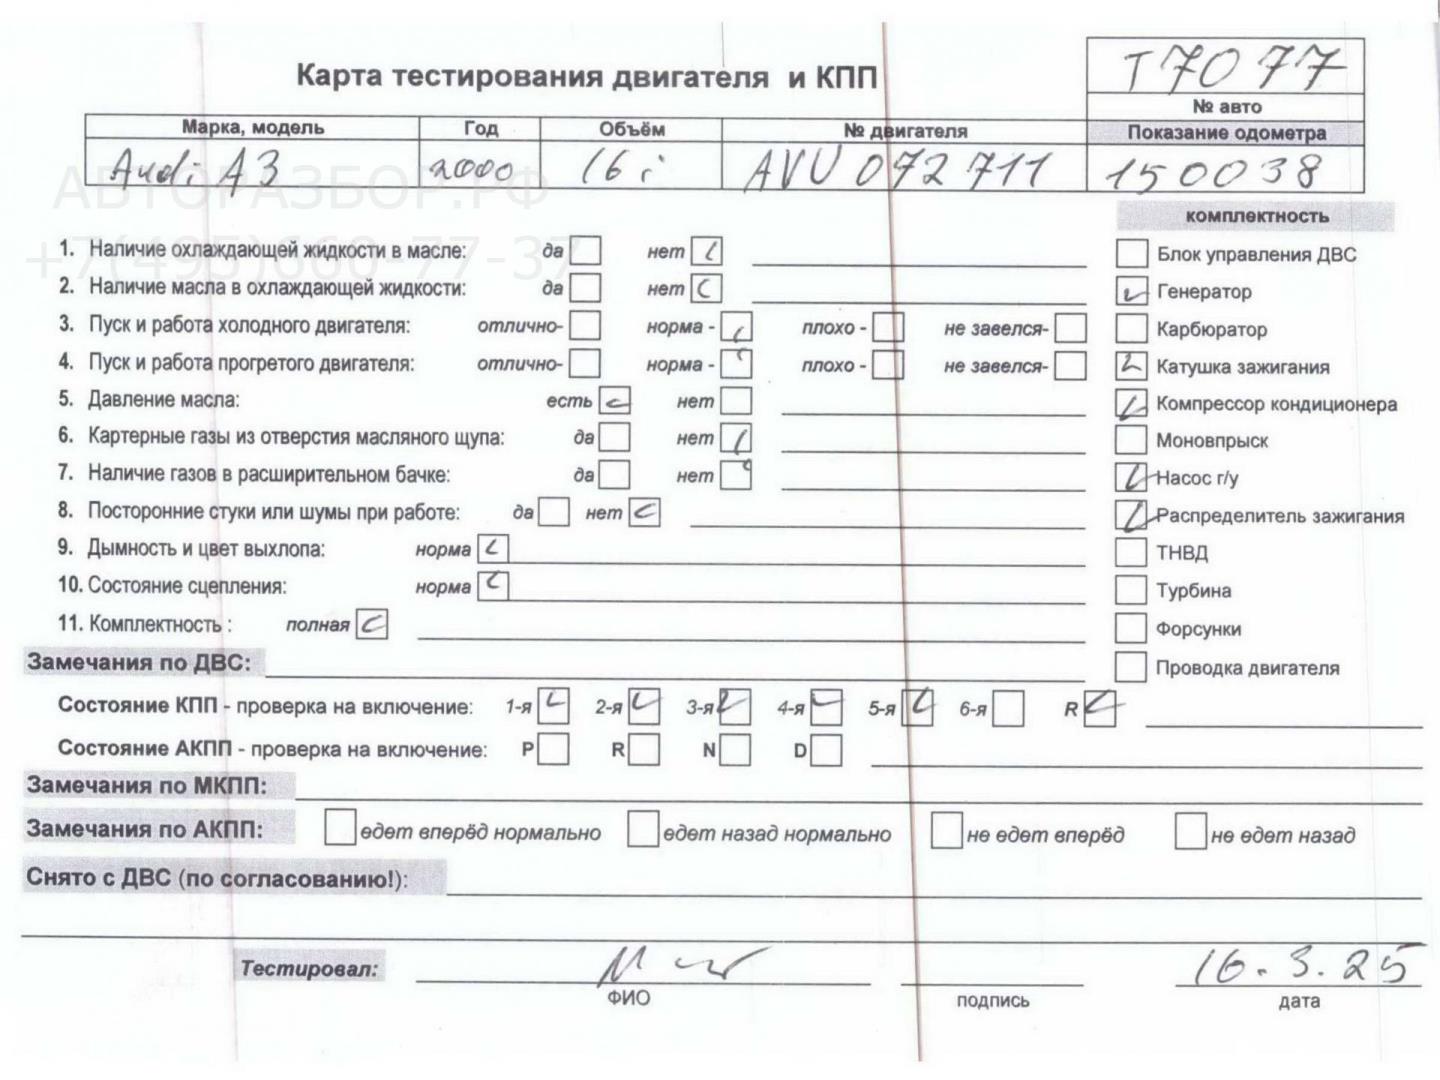 Карта тестирования двигателя и КПП
Т7077
№ авто
Марка, модель Год Объём № двигателя Показание одометра
Audi A3 2000 16 i AVU 072 711 150038
АВТОРАЗБОР.РФ
+7(495)660-77-37
комплектность
1. Наличие охлаждающей жидкости в масле: да нет
Блок управления ДВС
2. Наличие масла в охлаждающей жидкости: да нет
Генератор
3. Пуск и работа холодного двигателя: отлично- норма - плохо - не завелся-
Карбюратор
4. Пуск и работа прогретого двигателя: отлично- норма - плохо - не завелся-
Катушка зажигания
5. Давление масла: есть нет
Компрессор кондиционера
6. Картерные газы из отверстия масляного щупа: да нет
Моновпрыск
7. Наличие газов в расширительном бачке: да нет
Насос г/у
8. Посторонние стуки или шумы при работе: да нет
Распределитель зажигания
9. Дымность и цвет выхлопа: норма
ТНВД
10. Состояние сцепления: норма
Турбина
11. Комплектность : полная
Форсунки
Замечания по ДВС:
Проводка двигателя
Состояние КПП - проверка на включение: 1-я 2-я 3-я 4-я 5-я 6-я R
Состояние АКПП - проверка на включение: P R N D
Замечания по МКПП:
Замечания по АКПП: едет вперёд нормально едет назад нормально не едет вперёд не едет назад
Снято с ДВС (по согласованию!):
Тестировал: 16.3.25
ФИО подпись дата